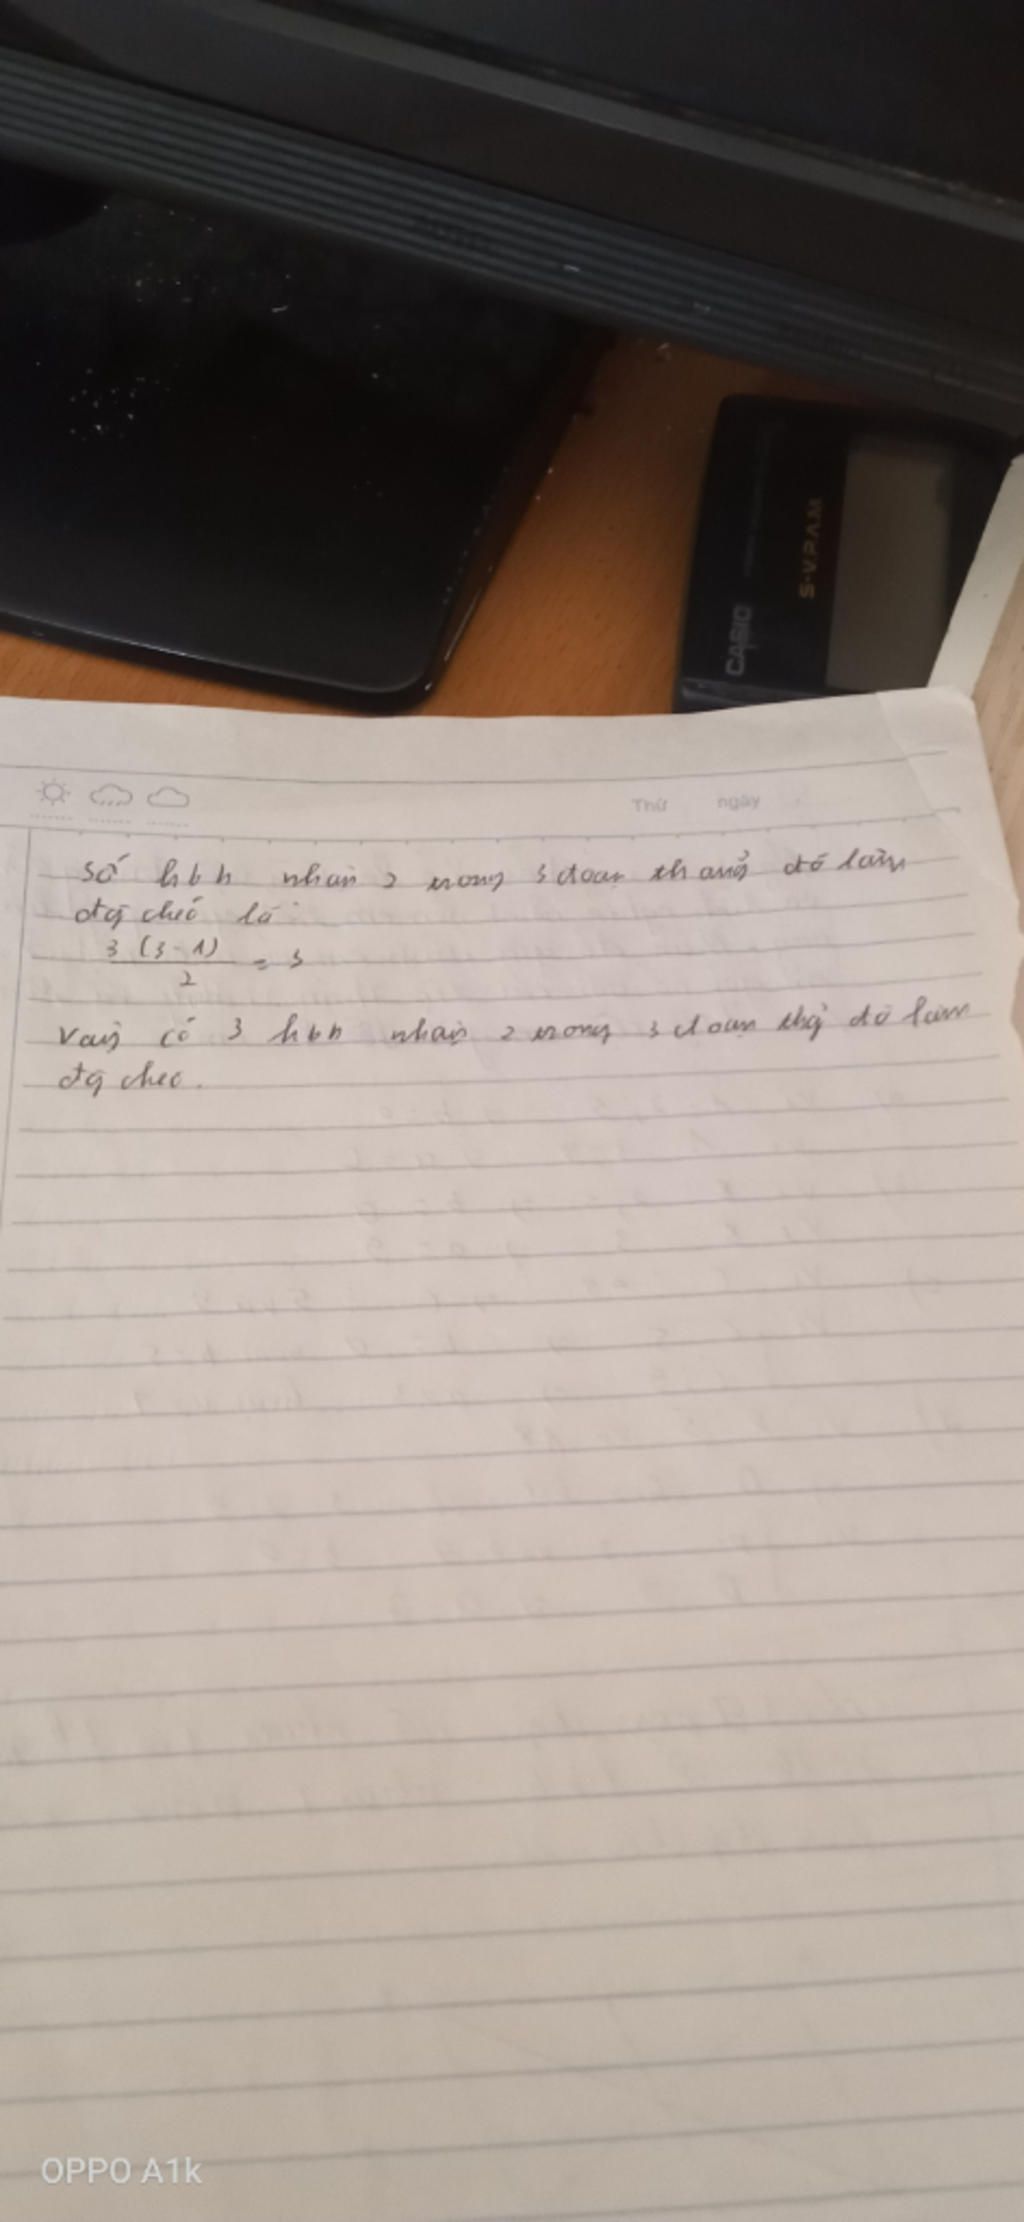 CASIO
S-V.P.A.M
Thứ ngày
Số hbh nhận 2 trong 3 đoạn thẳng đó làm
đg chéo là
3 (3-1) / 2 = 3
Vậy có 3 hbh nhận 2 trong 3 đoạn thg đó làm
đg chéo.
OPPO A1k